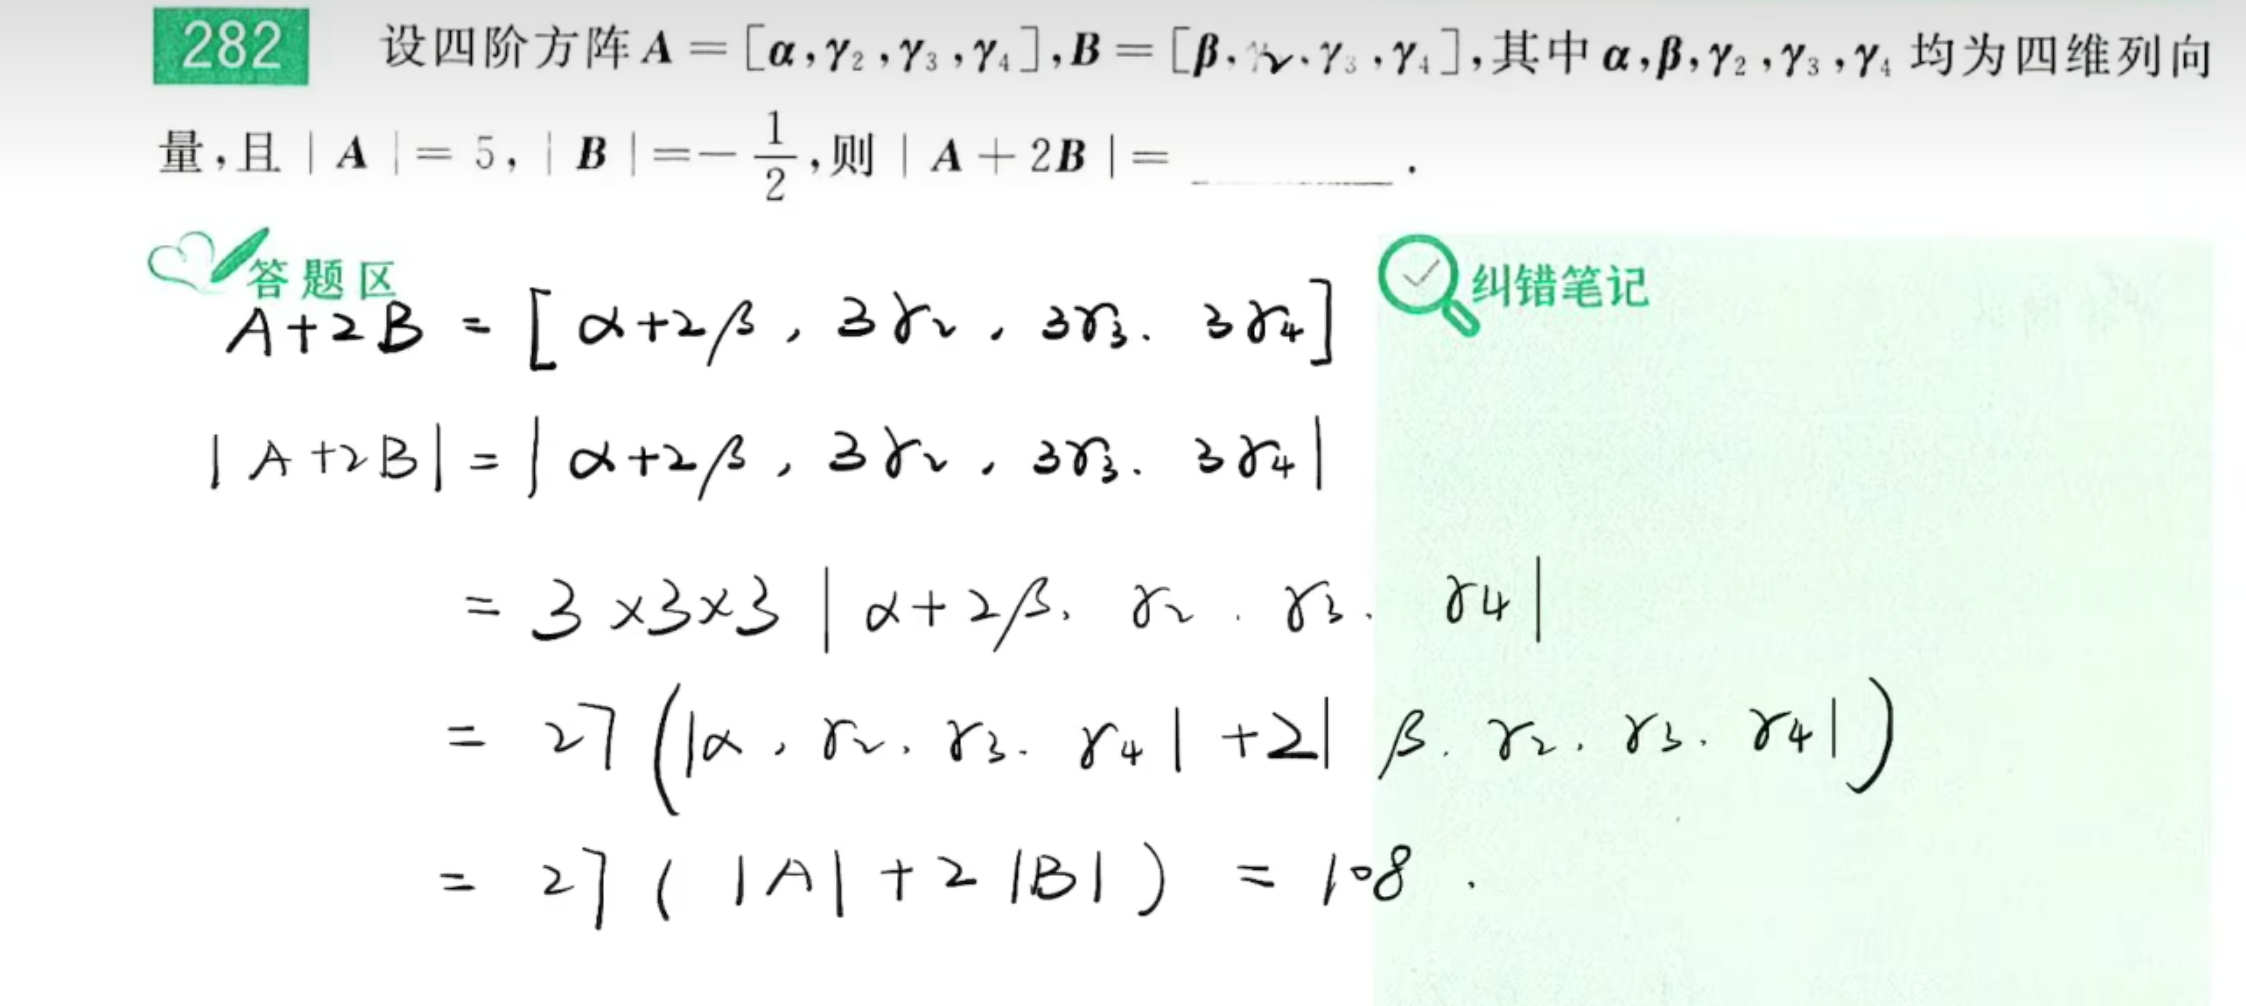 282 设四阶方阵 A = [α, γ₂, γ₃, γ₄], B = [β, γ₂, γ₃, γ₄], 其中 α, β, γ₂, γ₃, γ₄ 均为四维列向
量, 且 | A | = 5, | B | = - 1/2, 则 | A + 2B | = ________.
答题区
纠错笔记
A+2B = [α+2β, 3γ₂, 3γ₃. 3γ₄]
|A+2B| = |α+2β, 3γ₂, 3γ₃. 3γ₄|
= 3×3×3 |α+2β. γ₂. γ₃. γ₄|
= 27 (|α, γ₂. γ₃. γ₄| +2| β. γ₂. γ₃. γ₄|)
= 27 ( |A| + 2 |B| ) = 108.